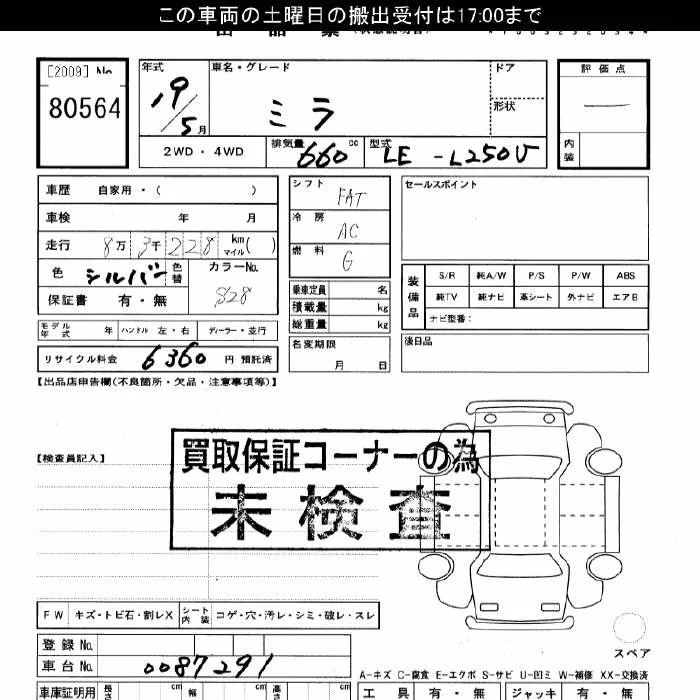 この車両の土曜日の搬出受付は17:00まで
[2009] No
80564
年式
19/5月
車名・グレード
ミラ
ドア
形状
評価点
内装
2WD・4WD
排気量 660 cc
型式 LE-L250V
車歴 自家用・( )
車検 年 月
走行 8万3千228 km マイル( )
色 シルバー 色替
カラーNo. S28
保証書 有・無
モデル年式 年 ハンドル 左・右 ディーラー・並行
リサイクル料金 6360 円 預託済
シフト FAT
冷房 AC
燃料 G
乗車定員 名
積載量 kg
総重量 kg
名変期限
月 日
セールスポイント
装備品
S/R 純A/W P/S P/W ABS
純TV 純ナビ 革シート 外ナビ エアB
ナビ型番:
後日品
【出品店申告欄(不良箇所・欠品・注意事項等)】
【検査員記入】
買取保証コーナーの為
未検査
FW キズ・トビ石・割レX シート内装 コゲ・穴・汚レ・シミ・破レ・スレ
登録No.
車台No. 0087291
スペア
A-キズ C-腐食 E-エクボ S-サビ U-凹ミ W-補修 XX-交換済
車庫証明用 長さ cm 幅 cm 高さ cm
工具 有・無 ジャッキ 有・無